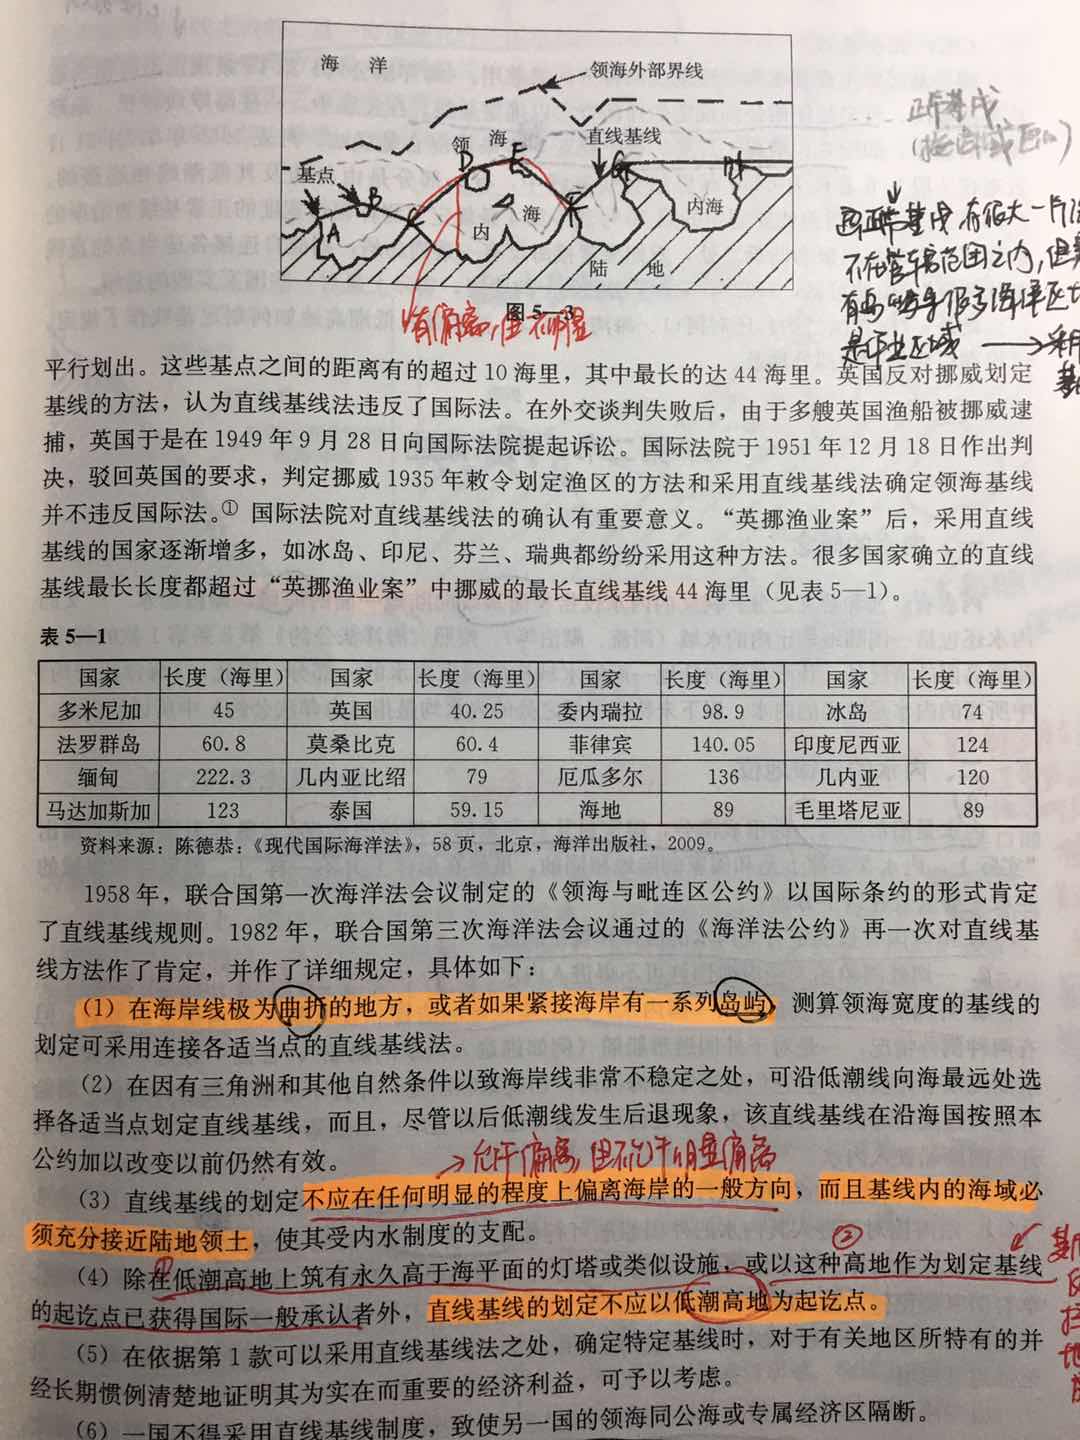 海 洋
领海外部界线
领 海
直线基线
基点
D
E
G
H
A
B
C
内
海
内海
陆 地
图5—3
有偏离,但不明显
正常基线
平行划出。这些基点之间的距离有的超过10海里，其中最长的达44海里。英国反对挪威划定
基线的方法，认为直线基线法违反了国际法。在外交谈判失败后，由于多艘英国渔船被挪威逮
捕，英国于是在1949年9月28日向国际法院提起诉讼。国际法院于1951年12月18日作出判
决，驳回英国的要求，判定挪威1935年敕令划定渔区的方法和采用直线基线法确定领海基线
并不违反国际法。① 国际法院对直线基线法的确认有重要意义。“英挪渔业案”后，采用直线
基线的国家逐渐增多，如冰岛、印尼、芬兰、瑞典都纷纷采用这种方法。很多国家确立的直线
基线最长长度都超过“英挪渔业案”中挪威的最长直线基线44海里（见表5—1）。
表5—1
国家 长度（海里） 国家 长度（海里） 国家 长度（海里） 国家 长度（海里）
多米尼加 45 英国 40.25 委内瑞拉 98.9 冰岛 74
法罗群岛 60.8 莫桑比克 60.4 菲律宾 140.05 印度尼西亚 124
缅甸 222.3 几内亚比绍 79 厄瓜多尔 136 几内亚 120
马达加斯加 123 泰国 59.15 海地 89 毛里塔尼亚 89
资料来源：陈德恭：《现代国际海洋法》，58页，北京，海洋出版社，2009。
1958年，联合国第一次海洋法会议制定的《领海与毗连区公约》以国际条约的形式肯定
了直线基线规则。1982年，联合国第三次海洋法会议通过的《海洋法公约》再一次对直线基
线方法作了肯定，并作了详细规定，具体如下：
（1）在海岸线极为曲折的地方，或者如果紧接海岸有一系列岛屿，测算领海宽度的基线的
划定可采用连接各适当点的直线基线法。
（2）在因有三角洲和其他自然条件以致海岸线非常不稳定之处，可沿低潮线向海最远处选
择各适当点划定直线基线，而且，尽管以后低潮线发生后退现象，该直线基线在沿海国按照本
公约加以改变以前仍然有效。
→允许偏离,但不允许明显偏离
（3）直线基线的划定不应在任何明显的程度上偏离海岸的一般方向，而且基线内的海域必
须充分接近陆地领土，使其受内水制度的支配。
① ②
（4）除在低潮高地上筑有永久高于海平面的灯塔或类似设施，或以这种高地作为划定基线
的起讫点已获得国际一般承认者外，直线基线的划定不应以低潮高地为起讫点。
（5）在依据第1款可以采用直线基线法之处，确定特定基线时，对于有关地区所特有的并
经长期惯例清楚地证明其为实在而重要的经济利益，可予以考虑。
（6）一国不得采用直线基线制度，致使另一国的领海同公海或专属经济区隔断。